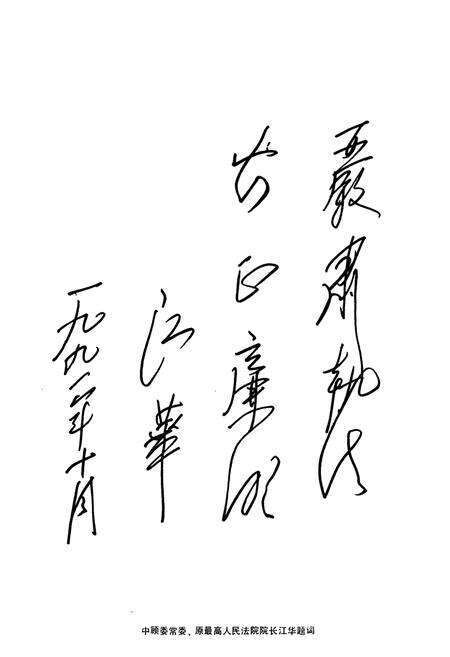 嚴肅執法
公正廉明
江華
一九九一年十月
中顾委常委、原最高人民法院院长江华题词